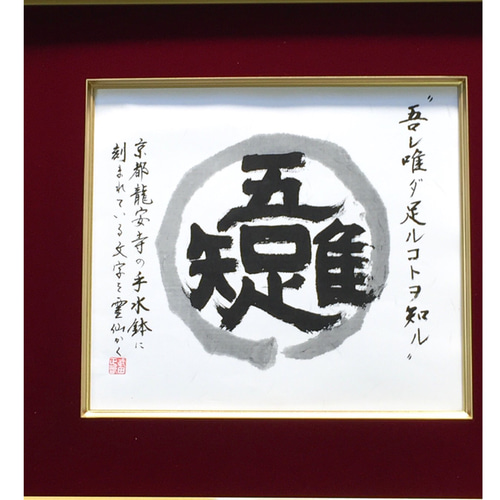 “吾レ唯ダ足ルコトヲ知ル”
五隹疋矢口
京都龍安寺の手水鉢に
刻まれている文字を雲仙かく